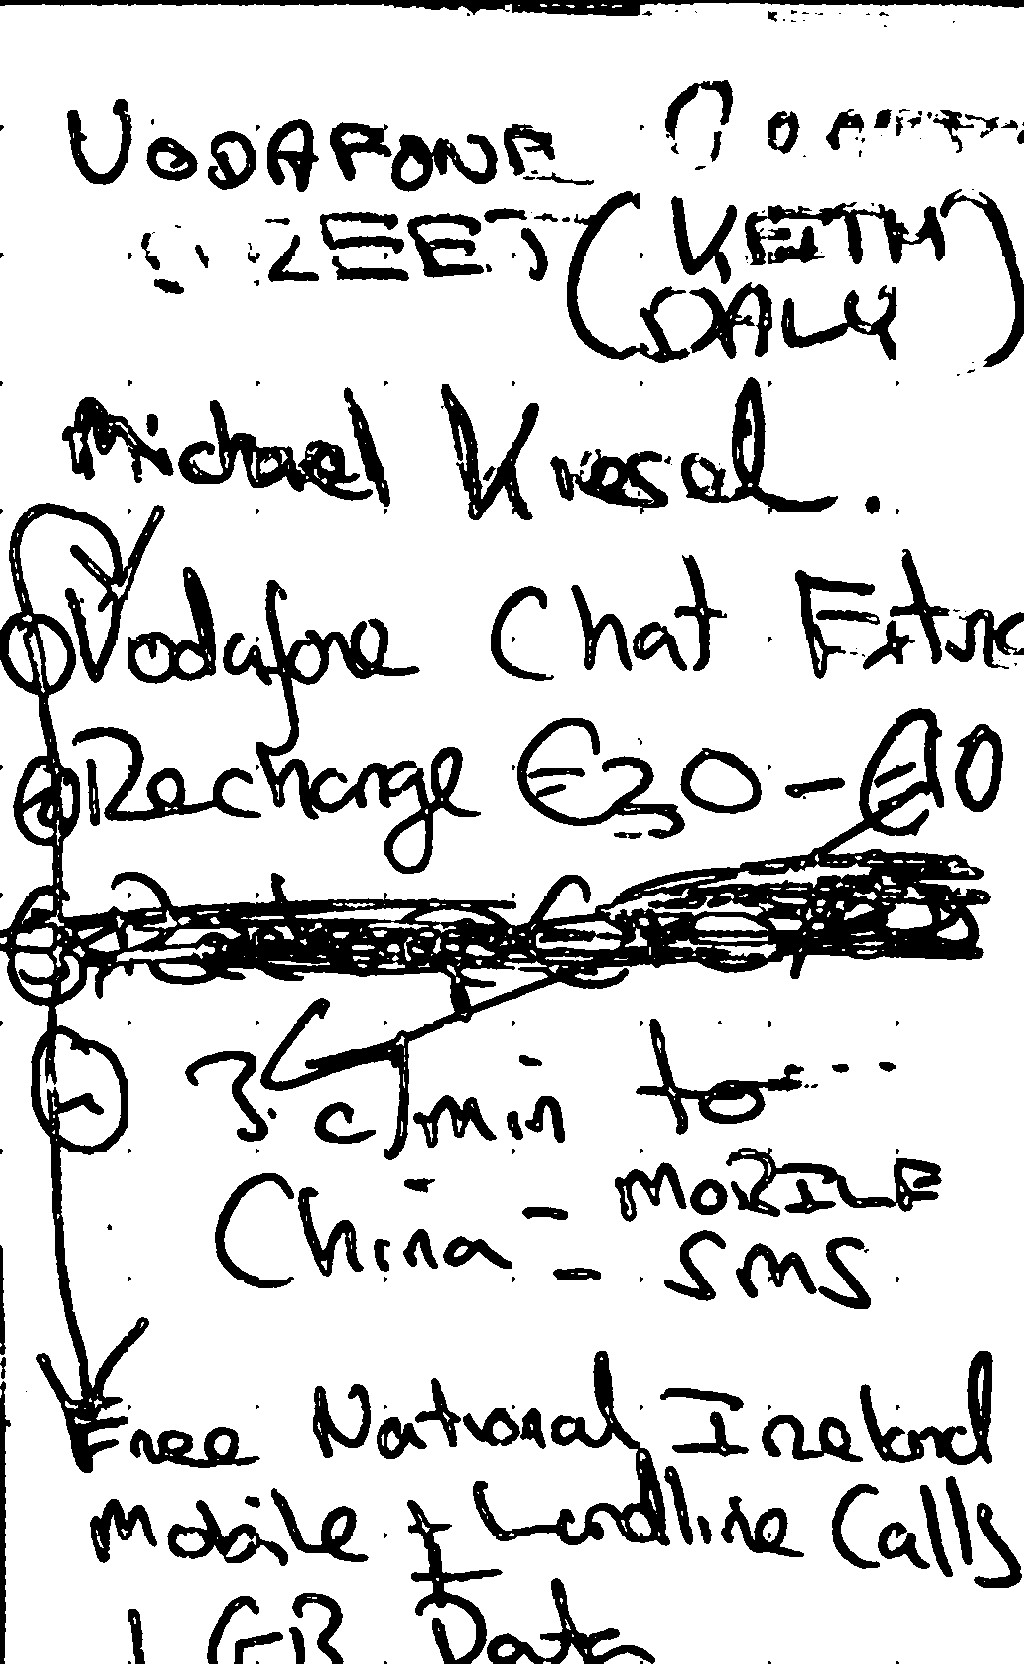 VODAFONE
(KEITH
DALY)
Michael
Vodafone Chat Extra
Recharge €30 - €10
3 c/min to
China = MOBILE
SMS
Free National Ireland
Mobile + Landline Calls
+
1 GB Data